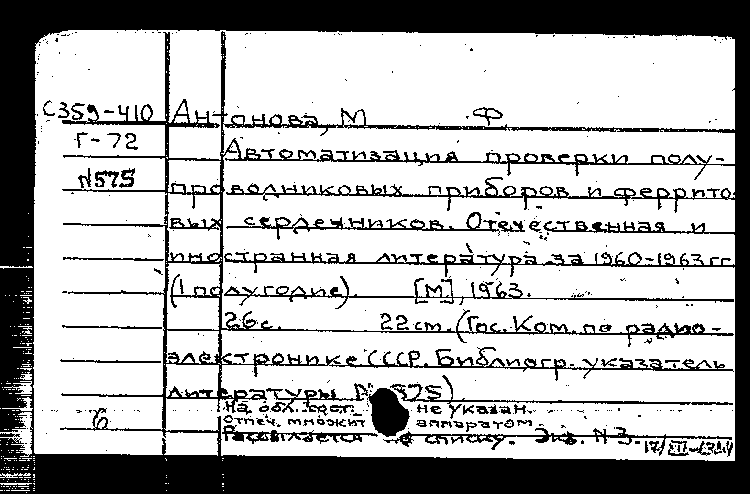 С359-410 Антонова, М Ф
Г-72 Автоматизация проверки полу-
N575 проводниковых приборов и феррито-
вых сердечников. Отечественная и
иностранная литература за 1960-1963 гг.
(I полугодие). [М], 1963.
26 с. 22 см. (Гос. Ком. по радио-
электронике СССР. Библиогр. указатель
литературы № 575)
На обл. сост. не указан.
Отпеч. множит аппаратом.
6 Рассылается по списку. Экз. N 3.